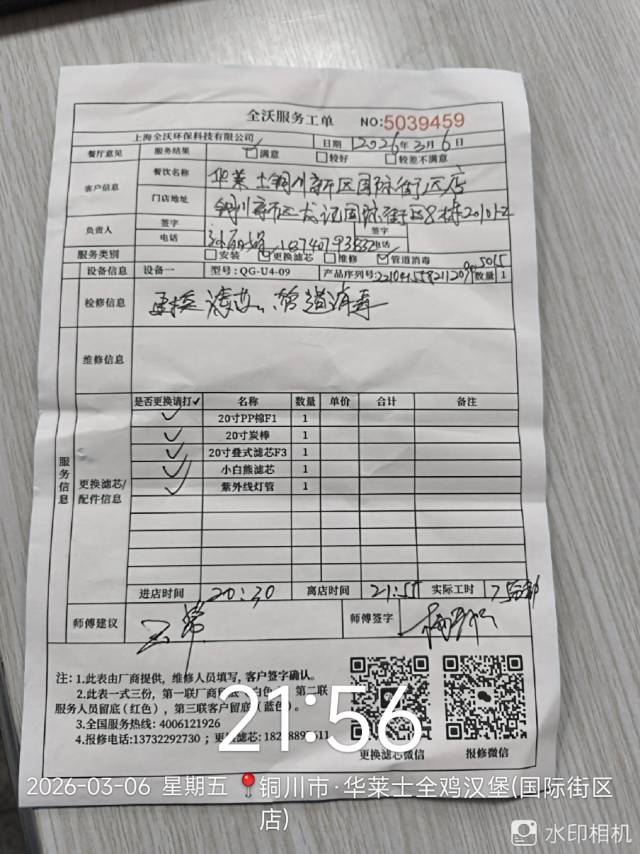 全沃服务工单 NO:5039459
上海全沃环保科技有限公司 日期 2026年3月6日
餐厅意见 服务结果 满意 较好 较差不满意
客户信息 餐饮名称 华莱士铜川新区国际街区店
门店地址 铜川新区 国际街区8栋
负责人 签字 电话 签字 电话
服务类别 安装 更换滤芯 维修 管道消毒
设备信息 设备一 型号：QG-U4-09 产品序列号: 数量 1
检修信息 更换滤芯、管道消毒
维修信息
服务信息
更换滤芯/配件信息
是否更换请打✓ 名称 数量 单价 合计 备注
✓ 20寸PP棉F1 1
✓ 20寸炭棒 1
✓ 20寸叠式滤芯F3 1
✓ 小白熊滤芯 1
✓ 紫外线灯管 1
进店时间 20:30 离店时间 21:55 实际工时
师傅建议 正常 师傅签字
注：1.此表由厂商提供，维修人员填写，客户签字确认。
2.此表一式三份，第一联厂商 白色 第二联
服务人员留底(红色)，第三联客户留底(蓝色)。
3.全国服务热线: 4006121926
4.报修电话:13732292730；
更换滤芯微信 报修微信
21:56
2026-03-06 星期五 铜川市·华莱士全鸡汉堡(国际街区
店)
水印相机